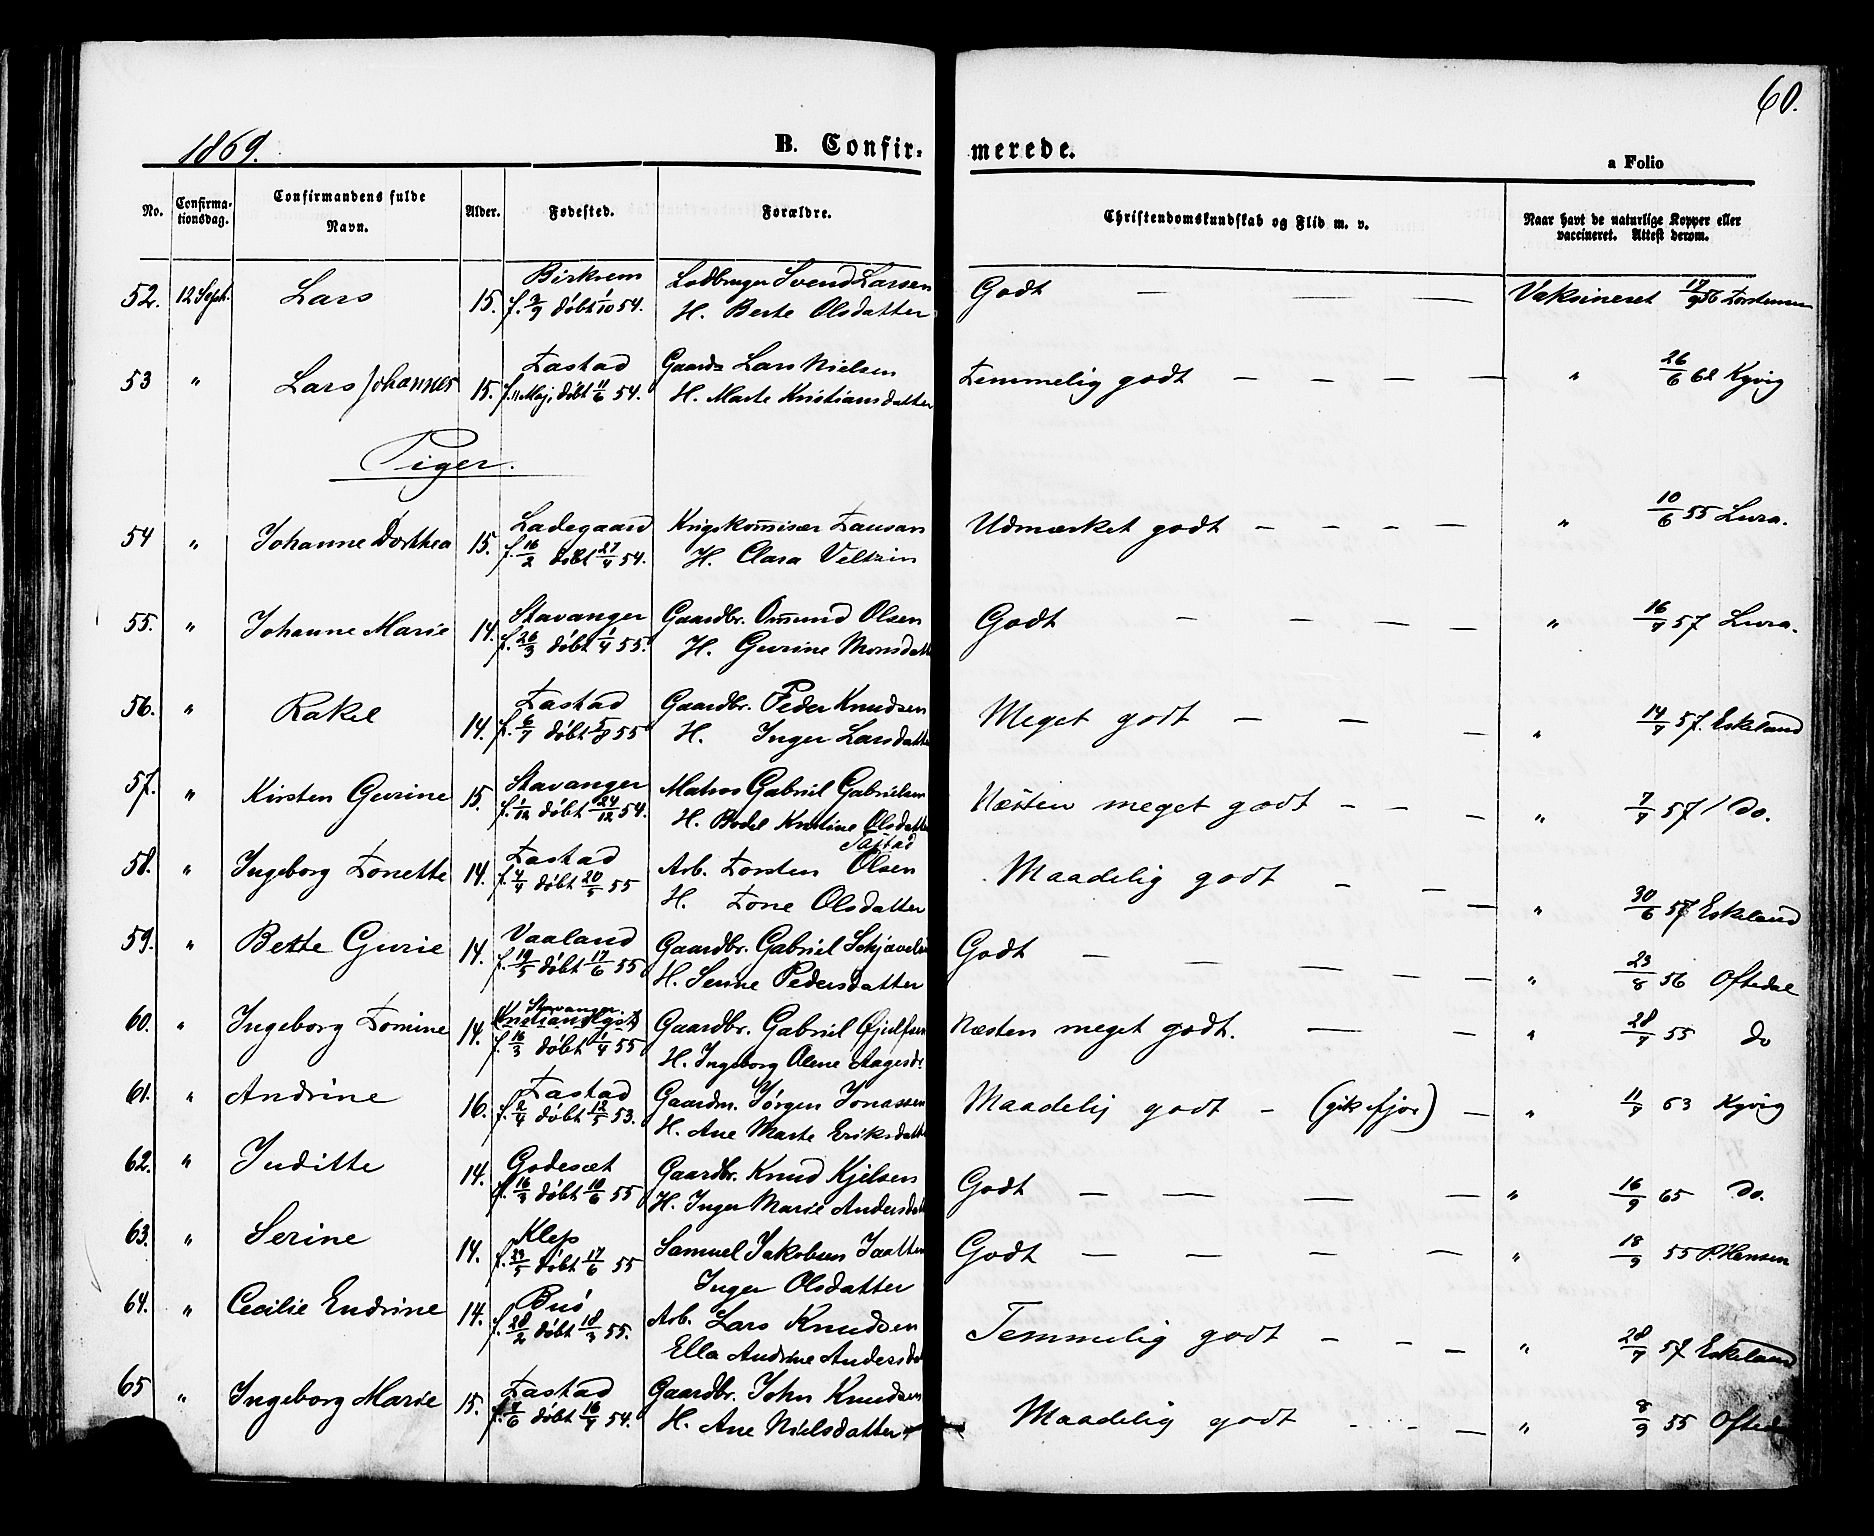 60.
1869.
B. Confir-merede.
a Folio
No. Confirma-tionsdag. Confirmandens fulde Navn. Alder. Fødested. Forældre. Christendomskundskab og Flid m. v. Naar havt de naturlige Kopper eller vaccineret. Attest derom.
52. 12 Sept. Lars 15. Birkrem Svend Larsen Godt — — — Vaksineret 17/9 56 Torstensen
f. 2/9 døbt 1/10 54. H. Berte Olsdatter
53 " Lars Johannes 15. Tastad Gaardb Lars Nielsen Temmelig godt — — — — " 26/6 62 Kyvig
f. 11 Maj, døbt 11/6 54. H. Marte Kristiansdatter
Piger.
54 " Johanne Dorthea 15. Ladegaard Krigskommisær Udmærket godt — — — — " 10/6 55 Lura.
f. 16/2 døbt 27/4 54. H. Clara
55. " Johanne Marie 14. Stavanger Gaardbr. Ommund Olsen Godt — — — — " 16/7 57 Lura.
f. 26/3 døbt 1/4 55. H. Gurine Monsdatt
56. " Rakel 14. Tastad Gaardbr. Peder Knudsen Meget godt — — — " 14/7 57. Eskeland
f. 6/7 døbt 5/8 55 H. Inger Larsdatte
57. " Kirsten Gurine 15. Stavanger Matros Gabriel Gabrielsen Næsten meget godt — — — " 7/7 57 Do.
f. 1/12 døbt 24/12 54. H. Bodel Kristine Olsdatte
Tastad
58. " Ingeborg Tonette 14. Tastad Arb. Torsten Olsen Maadelig godt — — — " 30/6 57 Eskeland
f. 7/4 døbt 20/5 55 H. Tone Olsdatter
59. " Bette Gurie 14. Vaaland Gaardbr. Gabriel Godt — — — — — " 23/8 56 Oftedal
f. 19/5 døbt 17/6 55 H. Senne Pedersdatter
60. " Ingeborg Tomine 14. Stavanger. Gaardbr. Gabriel Næsten meget godt. — — " 28/7 55 do
f. 16/3 døbt 1/4 55 H. Ingeborg Olene Aagesdr
61. " Andrine 16. Tastad Gaardm. Jørgen Jonassen Maadelig godt — (gik ifjor) — " 11/7 63 Kyvig
f. 2/4 døbt 12/5 53. H. Ane Marte Eriksdatte
62. " Juditte 14. Godesæt Gaardbr. Knud Kjelsen Godt — — — — " 16/9 65 Do.
f. 16/3 døbt 10/6 55 H. Inger Marie Andersdat
63. " Serine 14. Klep Samuel Jakobsen Godt — — — — " 18/9 55 P. Hansen
f. 29/5 døbt 17/6 55 Inger Olsdatter
64. " Cecilie Endrine 14. Buø Arb. Lars Knudsen Temmelig godt — — — " 28/7 57 Eskeland
f. 28/2 døbt 18/3 55. Ella Andrine Andersdat
65 " Ingeborg Marie 15. Tastad Gaardbr. John Knudsen Maadelig godt — " 8/9 55 Oftedal
døbt 16/7 54. H. Ane Nielsdatter